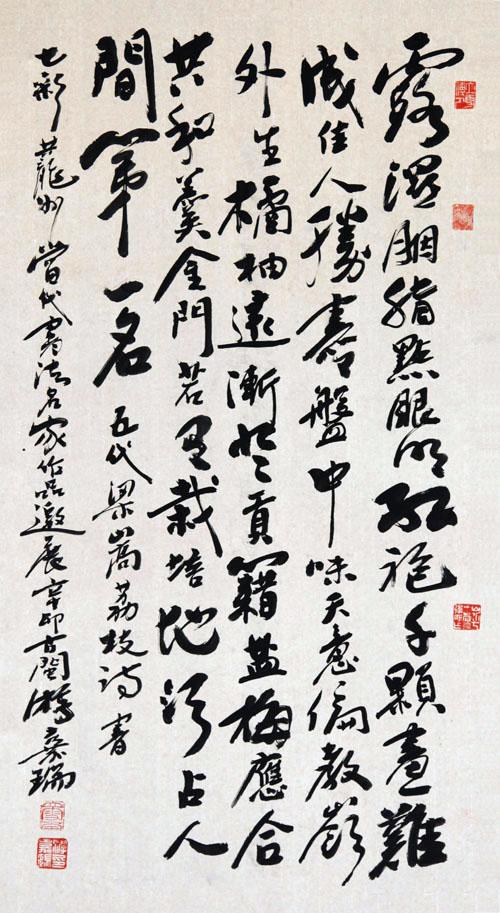 露濕胭脂點眼明紅袍千顆畫難
成佳人勝喜盤中味天意偏教嶺
外生橘柚遠漸登貢籍盐梅應合
共和羹金門若有栽培地須占人
間第一名 五代梁嵩荔枝詩書
州當代書法名家作品邀展辛卯古閩游嘉瑞